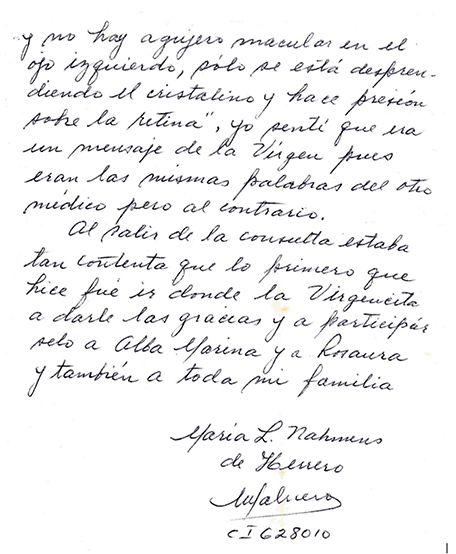 y no hay agujero macular en el
ojo izquierdo, sólo se está despren-
diendo el cristalino y hace presión
sobre la retina", yo sentí que era
un mensaje de la Virgen pues
eran las mismas palabras del otro
médico pero al contrario.
Al salir de la consulta estaba
tan contenta que lo primero que
hice fué ir donde la Virgencita
a darle las gracias y a participár
selo a Alba Marina y a Rosaura
y también a toda mi familia
María L. Nahmens
de Herrero
CI 628010